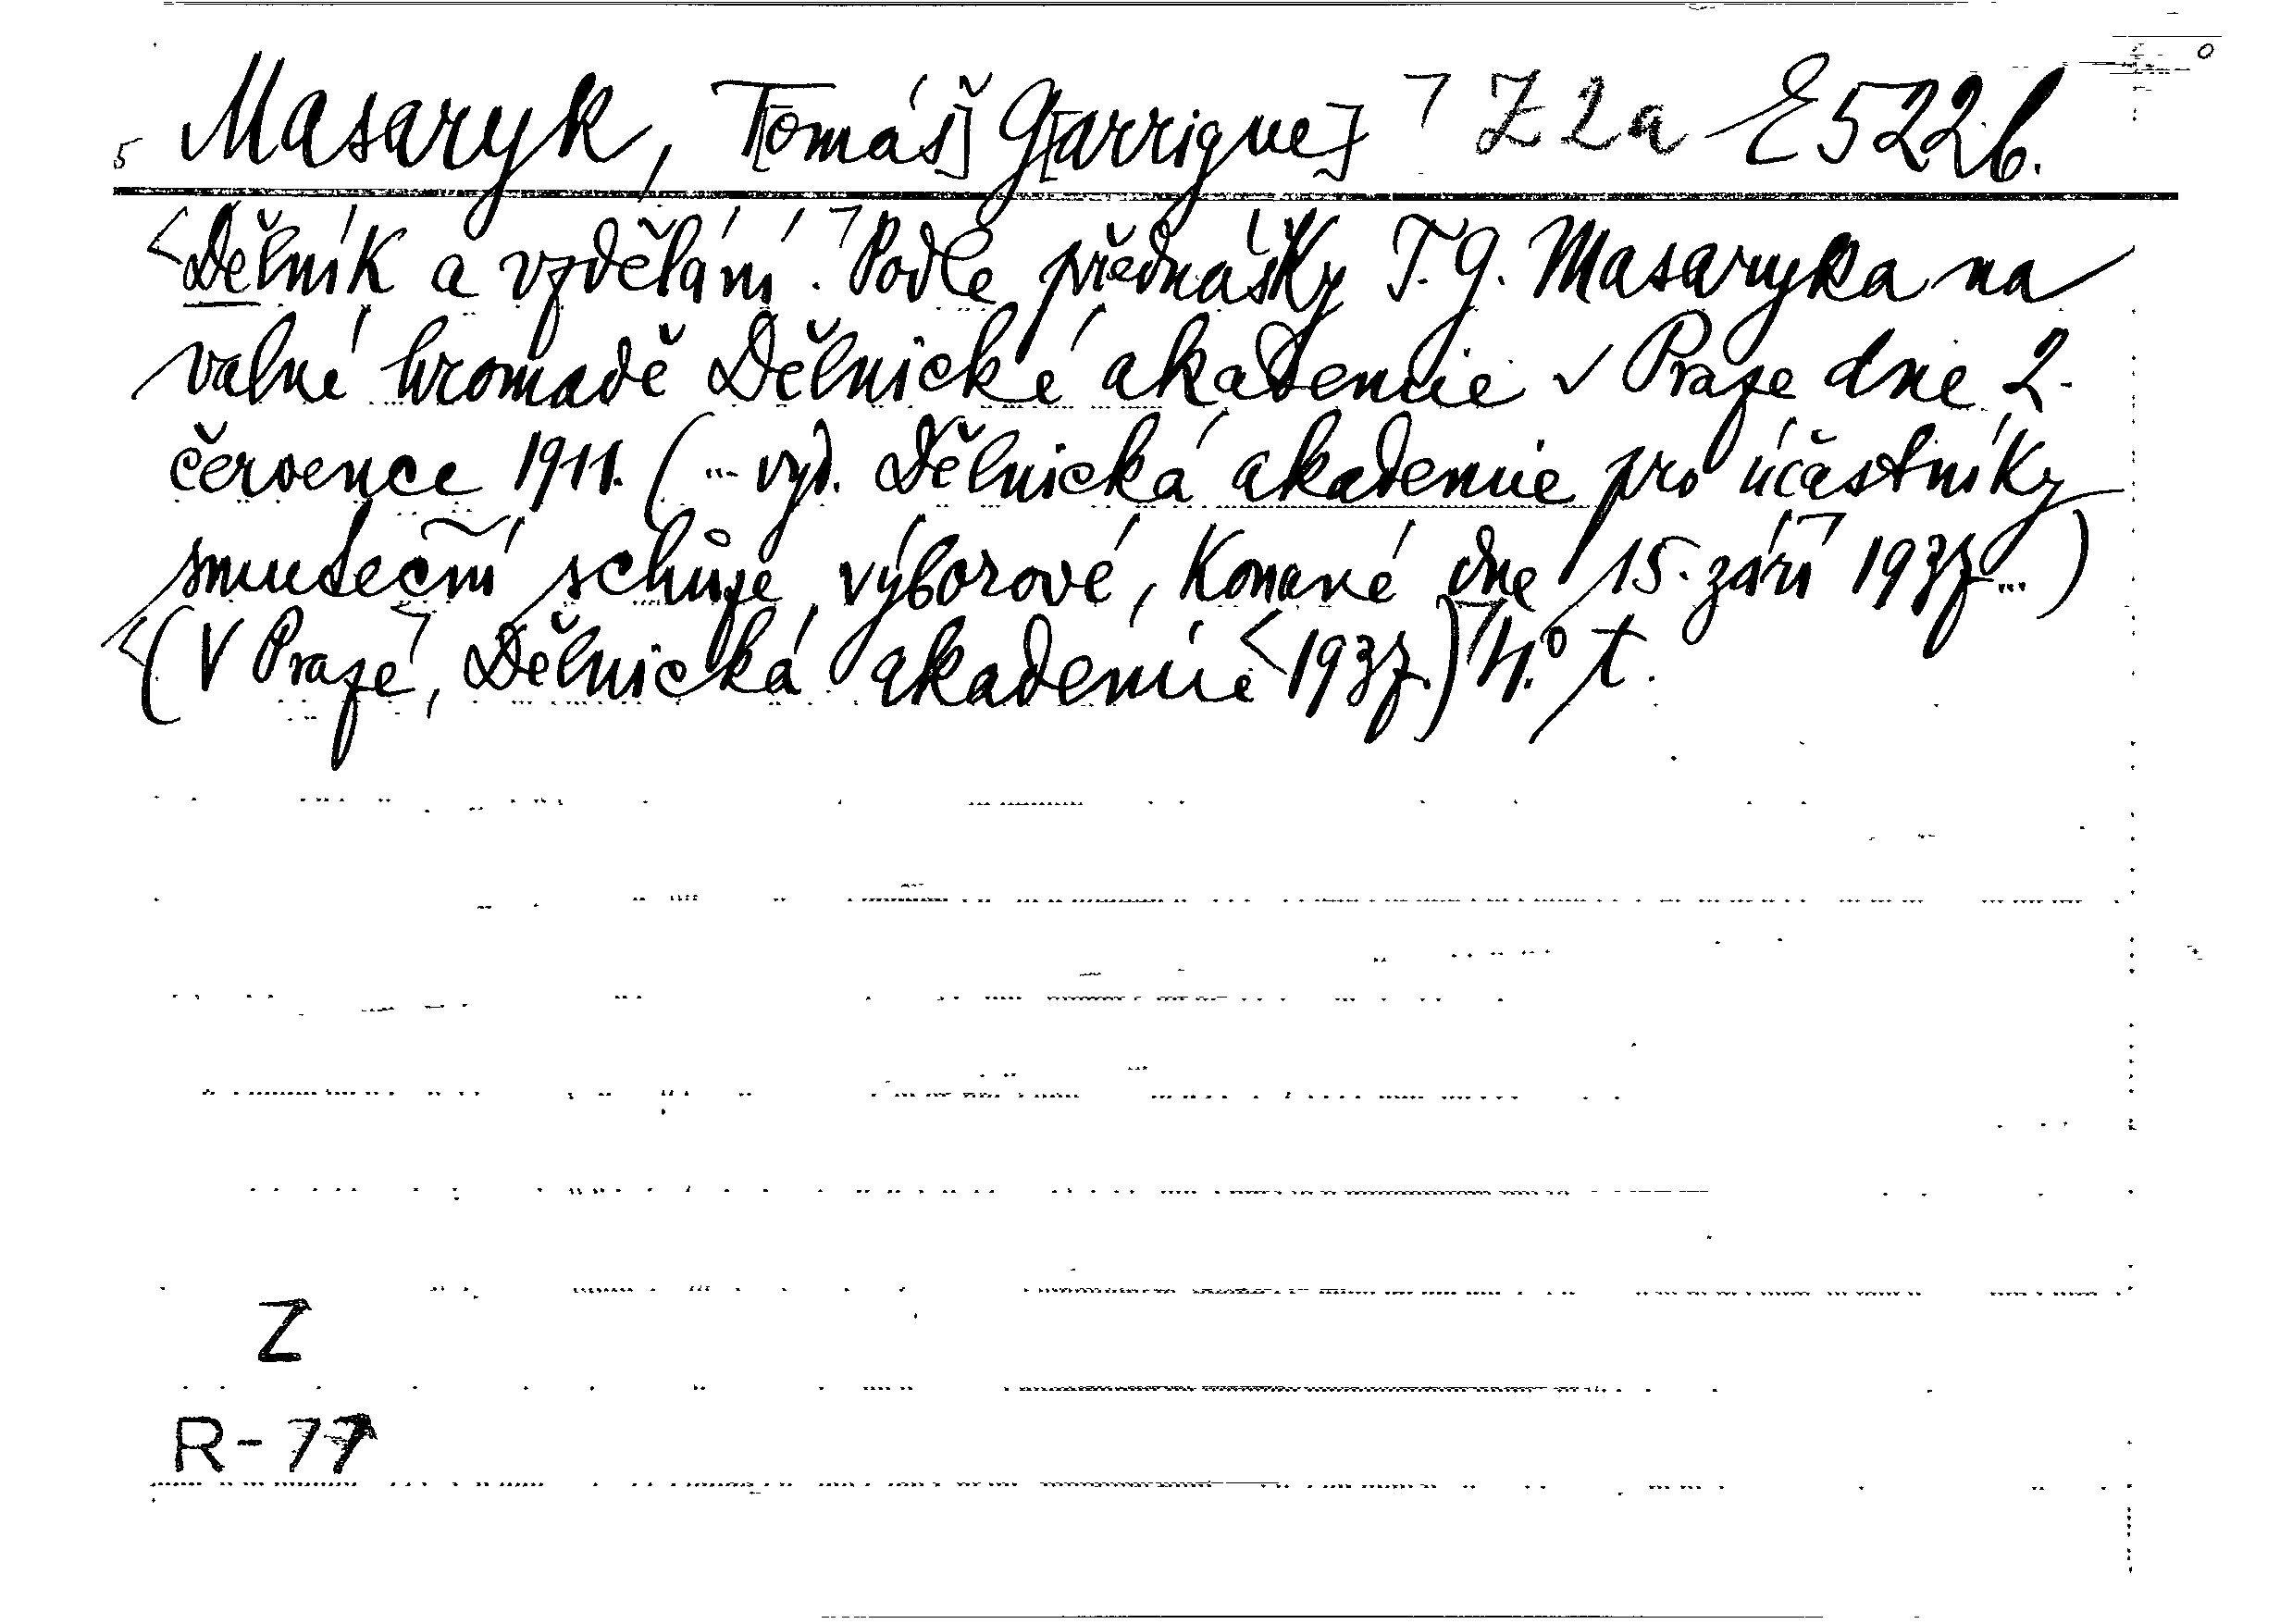 Masaryk, T[omáš] G[arrigue] Z 2a E 522b.
Dělník a vzdělání. Podle přednášky T. G. Masaryka na
valné hromadě Dělnické akademie v Praze dne 2.
července 1911. (... vyd. Dělnická akademie pro účastníky
smuteční schůze výborové, konané dne 15. září 1937...)
(V Praze, Dělnická akademie 1937.) 4.° t.
Z
R-77